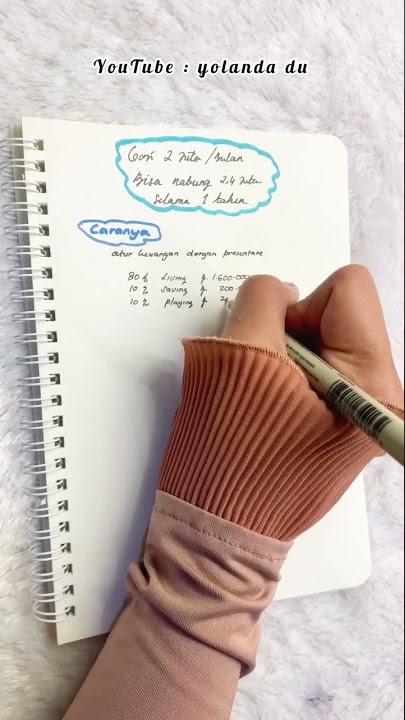 YouTube : yolanda du
Gaji 2 juta /bulan
Bisa nabung 2.4 juta
Selama 1 tahun
Caranya
atur keuangan dengan presentase
80 % Living p. 1.600.000
10 % Saving p. 200.
10 % playing p. 2